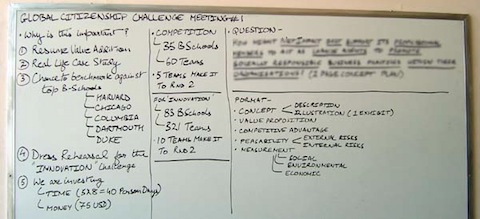 GLOBAL CITIZENSHIP CHALLENGE MEETING #1
Why is this important?
① RESUME VALUE ADDITION
② REAL LIFE CASE STUDY
③ CHANCE TO BENCHMARK AGAINST
TOP B-SCHOOLS
HARVARD
CHICAGO
COLUMBIA
DARTMOUTH
DUKE
④ DRESS REHEARSAL FOR THE
"INNOVATION" CHALLENGE
⑤ WE ARE INVESTING
TIME (5X8=40 PERSON DAYS)
MONEY (75 USD)
COMPETITION
35 B SCHOOLS
60 TEAMS
5 TEAMS MAKE IT
TO RND 2
FOR 'INNOVATION'
83 B SCHOOLS
321 TEAMS
10 TEAMS MAKE IT
TO RND 2
QUESTION -
(2 PAGE CONCEPT PLAN)
FORMAT -
CONCEPT
DESCRIPTION
ILLUSTRATION (1 EXHIBIT)
VALUE PROPOSITION
COMPETITIVE ADVANTAGE
FEASABILITY
EXTERNAL RISKS
INTERNAL RISKS
MEASUREMENT
SOCIAL
ENVIRONMENTAL
ECONOMIC